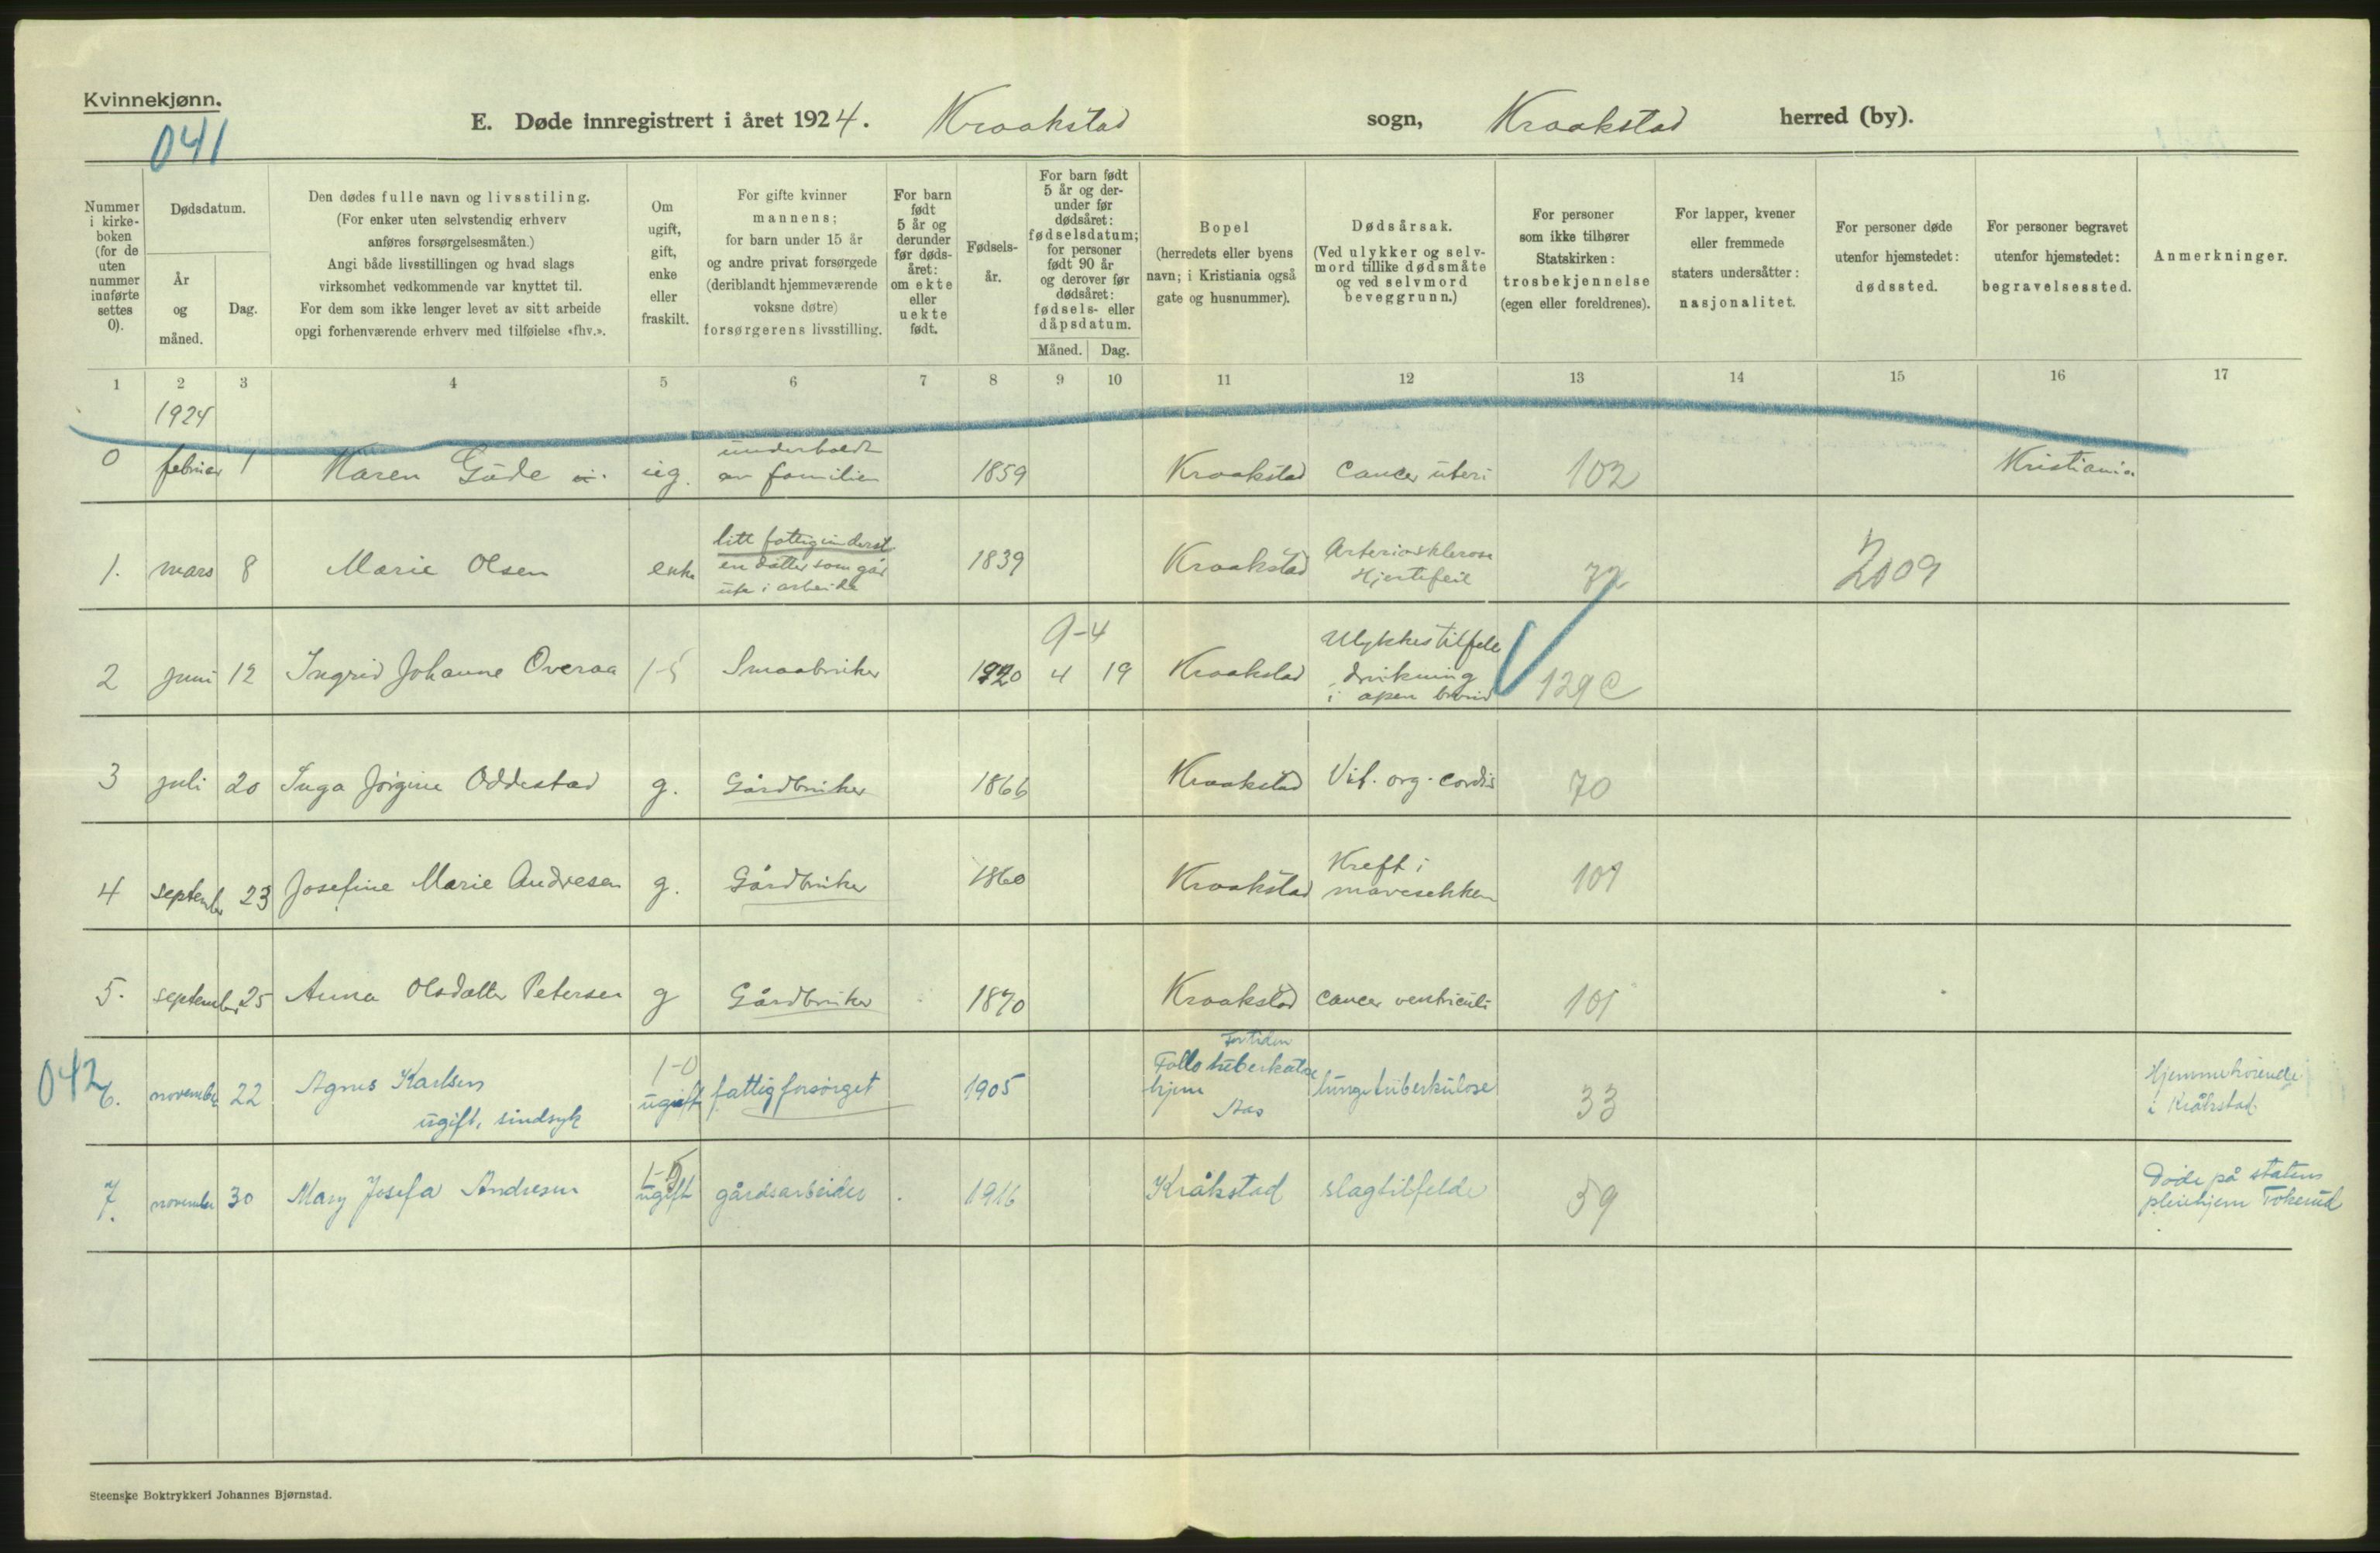 Kvinnekjønn.
041
E. Døde innregistrert i året 1924. Kraakstad sogn, Kraakstad herred (by).
Nummer i kirkeboken (for de uten nummer innførte settes 0).
Dødsdatum.
År og måned.
Dag.
Den dødes fulle navn og livsstiling.
(For enker uten selvstendig erhverv
anføres forsørgelsesmåten.)
Angi både livsstillingen og hvad slags
virksomhet vedkommende var knyttet til.
For dem som ikke lenger levet av sitt arbeide
opgi forhenværende erhverv med tilføielse «fhv.».
Om ugift, gift, enke eller fraskilt.
For gifte kvinner
mannens;
for barn under 15 år
og andre privat forsørgede
(deriblandt hjemmeværende
voksne døtre)
forsørgerens livsstilling.
For barn født 5 år og derunder før dødsåret: om ekte eller uekte født.
Fødselsår.
For barn født 5 år og derunder før dødsåret: fødselsdatum; for personer født 90 år og derover før dødsåret: fødsels- eller dåpsdatum.
Måned. Dag.
Bopel
(herredets eller byens
navn; i Kristiania også
gate og husnummer).
Dødsårsak.
(Ved ulykker og selvmord tillike dødsmåte og ved selvmord beveggrunn.)
For personer
som ikke tilhører
Statskirken:
trosbekjennelse
(egen eller foreldrenes).
For lapper, kvener
eller fremmede
staters undersåtter:
nasjonalitet.
For personer døde
utenfor hjemstedet:
dødssted.
For personer begravet
utenfor hjemstedet:
begravelsessted.
Anmerkninger.
1 2 3 4 5 6 7 8 9 10 11 12 13 14 15 16 17
1924
0 februar 1 Karen Gude ug. underholdt av familien 1859 Kraakstad Cancer uteri 102 Kristiania
1. mars 8 Marie Olsen enke litt fattigunderst. en datter som går ute i arbeide 1839 Kraakstad Arteriosklerose Hjertefeil 72 2009
9-4
2 juni 12 Ingrid Johanne Overaa 1-5 Smaabruker 1920 4 19 Kraakstad Ulykkestilfelle drukning i åpen brønd 129 C
3 juli 20 Inga Jørgine Oddestad g. Gårdbruker 1866 Kraakstad Vit. org. cordis 70
4 september 23 Josefine Marie Andresen g. Gårdbruker 1860 Kraakstad Kreft i mavesekken 101
5. september 25 Anna Olsdatter Petersen g Gårdbruker 1870 Kraakstad Cancer ventriculi 101
042
6. november 22 Agnes Karlsen ugift, sindsyk 1-0 ugift fattigforsørget 1905 For tiden Follo tuberkulosehjem Aas lungetuberkulose 33 Hjemmehørende i Kråkstad.
7. november 30 Mary Josefa Andresen 1-5 ugift gårdsarbeider 1916 Kråkstad slagtilfelde 59 Døde på statens pleiehjem Tokerud
Steenske Boktrykkeri Johannes Bjørnstad.